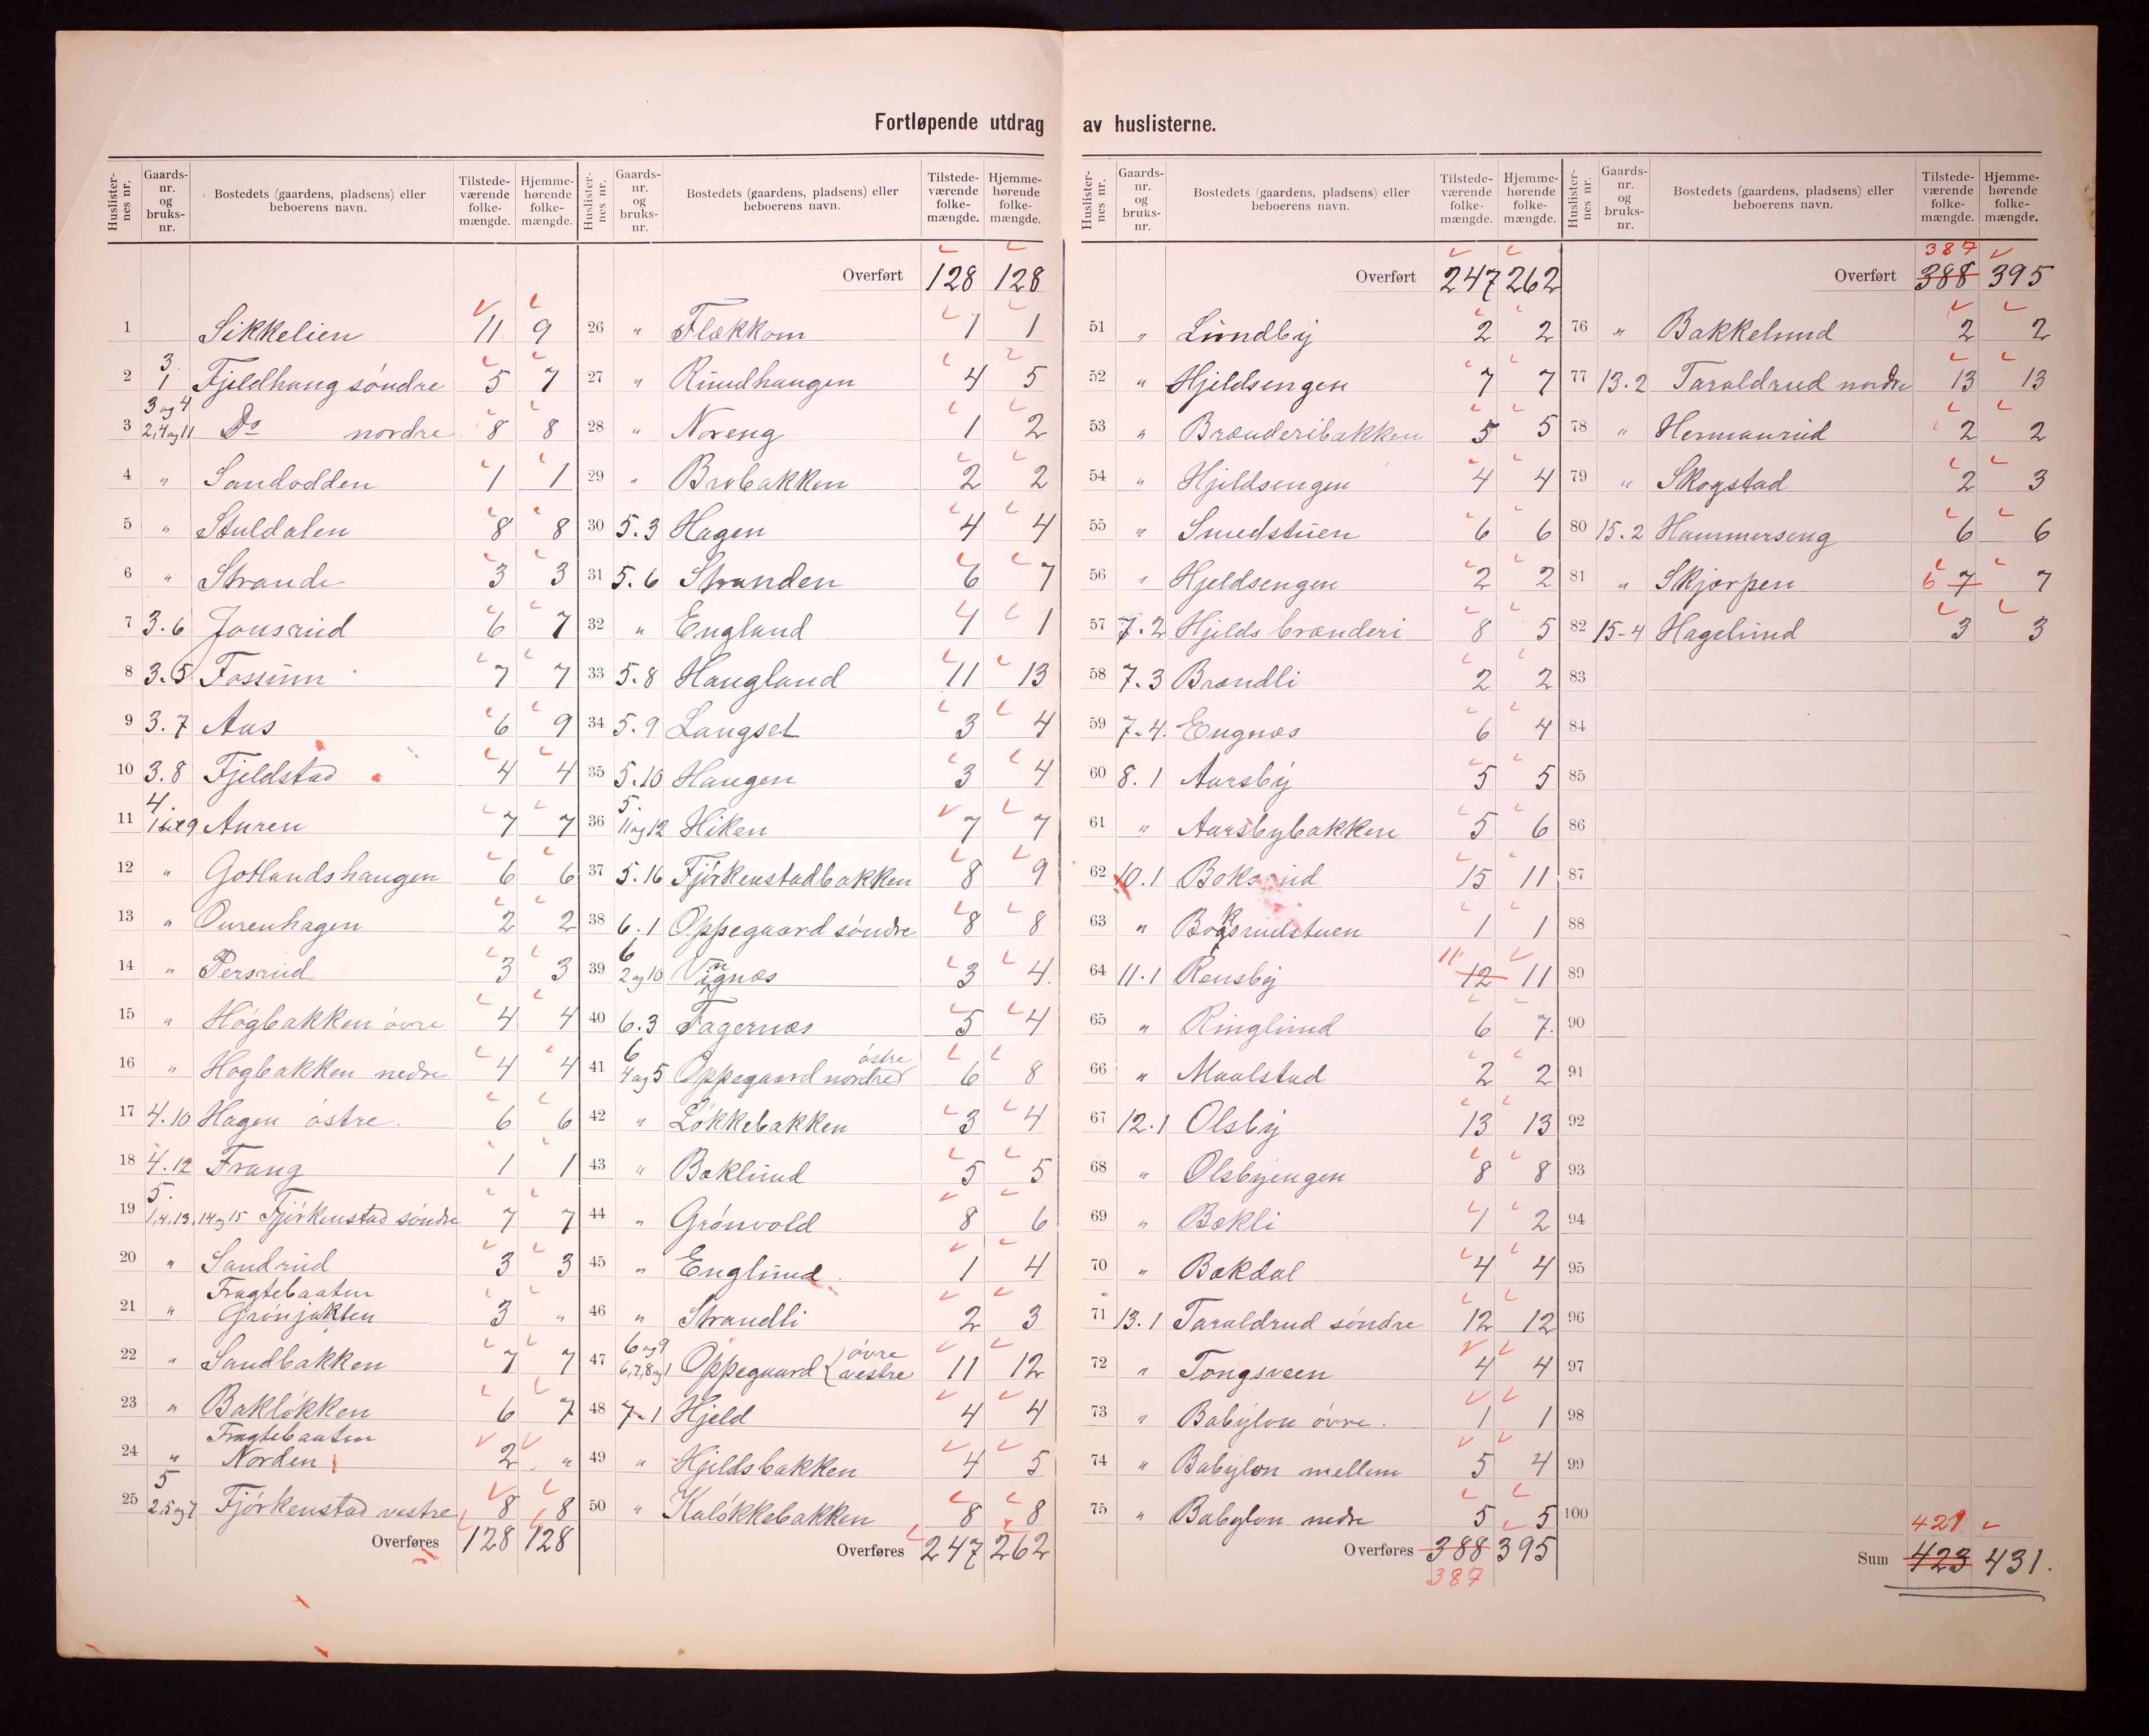 Fortløpende utdrag av huslisterne.
Huslisternes nr. Gaards-nr. og bruks-nr. Bostedets (gaardens, pladsens) eller beboerens navn. Tilstedeværende folkemængde. Hjemmehørende folkemængde.
1 Sikkelien 11 9
2 3 1 Fjeldhaug søndre 5 7
3 3 og 4 2,4 og 11 Do nordre 8 8
4 " Sandodden 1 1
5 " Stuldalen 8 8
6 " Strande 3 3
7 3.6 Jonsrud 6 7
8 3.5 Fossum 7 7
9 3.7 Aas 6 9
10 3.8 Fjeldstad 4 4
11 4. 1 til 9 Auren 7 7
12 " Gotlandshaugen 6 6
13 " Ourenhagen 2 2
14 " Persrud 3 3
15 " Høgbakken øvre 4 4
16 " Høgbakken nedre 4 4
17 4.10 Hagen østre. 6 6
18 4.12 Frang 1 1
19 5. 1,4,13,14 og 15 Fjørkenstad søndre 7 7
20 " Sandrud 3 3
21 " Fragtebaaten Grønjakten 3 "
22 " Sandbakken 7 7
23 " Bakløkken 6 7
24 " Fragtebaaten Norden 2 "
25 5 2.5 og 7 Fjørkenstad vestre 8 8
Overføres 128 128
Huslisternes nr. Gaards-nr. og bruks-nr. Bostedets (gaardens, pladsens) eller beboerens navn. Tilstedeværende folkemængde. Hjemmehørende folkemængde.
Overført 128 128
26 " Flækkom 1 1
27 " Rundhaugen 4 5
28 " Noreng 1 2
29 " Brobakken 2 2
30 5.3 Hagen 4 4
31 5.6 Stranden 6 7
32 " England 4 1
33 5.8 Haugland 11 13
34 5.9 Langset 3 4
35 5.10 Haugen 3 4
36 5. 11 og 12 Hiken 7 7
37 5.16 Fjørkenstadbakken 8 9
38 6.1 Oppegaard søndre 8 8
39 6 2 og 10 Vignæs 3 4.
40 6.3 Fagernæs 5 4
41 6 4 og 5 Oppegaard nordre østre 6 8
42 " Løkkebakken 3 4
43 " Bæklund 5 5
44 " Grønvold 8 6
45 " Englund 1 4
46 " Strandli 2 3
47 6 og 9 6,7,8 og 1 Oppegaard { øvre vestre 11 12
48 7.1 Hjeld 4 4
49 " Hjeldsbakken 4 5
50 " Kaløkkebakken 8 8
Overføres 247 262
Huslisternes nr. Gaards-nr. og bruks-nr. Bostedets (gaardens, pladsens) eller beboerens navn. Tilstedeværende folkemængde. Hjemmehørende folkemængde.
Overført 247 262
51 " Lundby 2 2
52 " Hjeldsengen 7 7
53 " Brænderibakken 5 5
54 " Hjeldsengen 4 4
55 " Smedstuen 6 6
56 " Hjeldsengen 2 2
57 7.2 Hjelds brænderi 8 5
58 7.3 Brændli 2 2
59 7.4. Engnæs 6 4
60 8.1 Aarsby 5 5
61 " Aarsbybakken 5 6
62 10.1 Boksrud 15 11
63 " Boksrudstuen 1 1
64 11.1 Rensby 11 12 11
65 " Ringlund 6 7.
66 " Maalstad 2 2
67 12.1 Olsby 13 13
68 " Olsbyengen 8 8
69 " Bækli 1 2
70 " Bækdal 4 4
71 13.1 Taraldrud søndre 12 12
72 " Tongsveen 4 4
73 " Babylon øvre. 1 1
74 " Babylon mellem 5 4
75 " Babylon nedre 5 5
Overføres 388 395
387
Huslisternes nr. Gaards-nr. og bruks-nr. Bostedets (gaardens, pladsens) eller beboerens navn. Tilstedeværende folkemængde. Hjemmehørende folkemængde.
387
Overført 388 395
76 " Bakkelund 2 2
77 13.2 Taraldrud nordre 13 13
78 " Hermanrud 2 2
79 " Skogstad 2 3
80 15.2 Hammerseng 6 6
81 " Skjærpen 6 7 7
82 15-4 Hagelund 3 3
83
84
85
86
87
88
89
90
91
92
93
94
95
96
97
98
99
100
421
Sum 423 431.